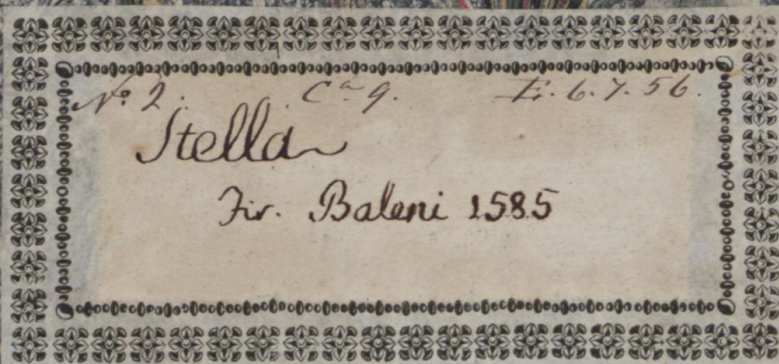 Nº 2. Cª 9. E. 6. 7. 56.
Stella
Fir. Baleni 1585